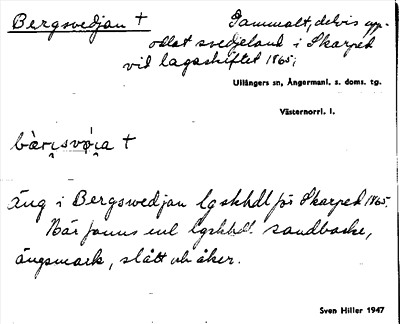 Bergsvedjan †
Gammalt, delvis upp-
odlat svedjeland i Skarped
vid lagaskiftet 1865;
Ullångers sn, Ångermanl. s. doms. tg.
Västernorrl. l.
†
äng i Bergsvedjan lgskhdl för Skarped 1865.
Här fanns enl lgskhdl. sandbacke,
ängsmark, slått och åker.
Sven Hiller 1947